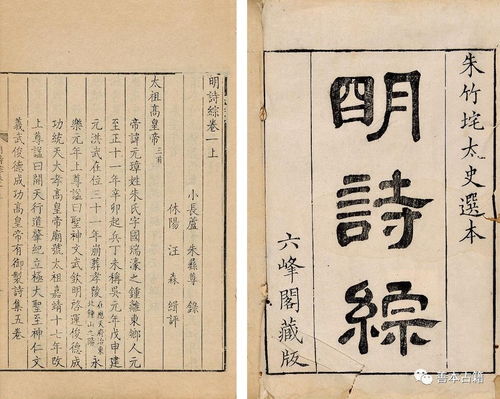 朱竹垞太史選本
明詩綜
六峰閣藏版
明詩綜卷一上
小長蘆 朱彝尊 錄
休陽 汪 森 緝評
太祖高皇帝三首
帝諱元璋姓朱氏字國瑞濠之鍾離東鄉人元
至正十一年辛卯起兵丁未稱吳元年戊申建
元洪武在位三十一年崩葬孝陵在應天府治東北鍾山之陽永
樂元年上尊諡曰聖神文武欽明啓運俊德成
功統天大孝高皇帝廟號太祖嘉靖十七年改
上尊諡曰開天行道肇紀立極大聖至神仁文
義武俊德成功高皇帝有御製詩集五卷
善本古籍